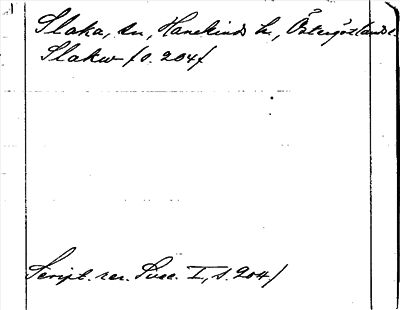 Slaka, sn, Hanekinds hd, Östergötlands l.
Slakw /s. 204/
Script. rer. Svec. I, s. 204/